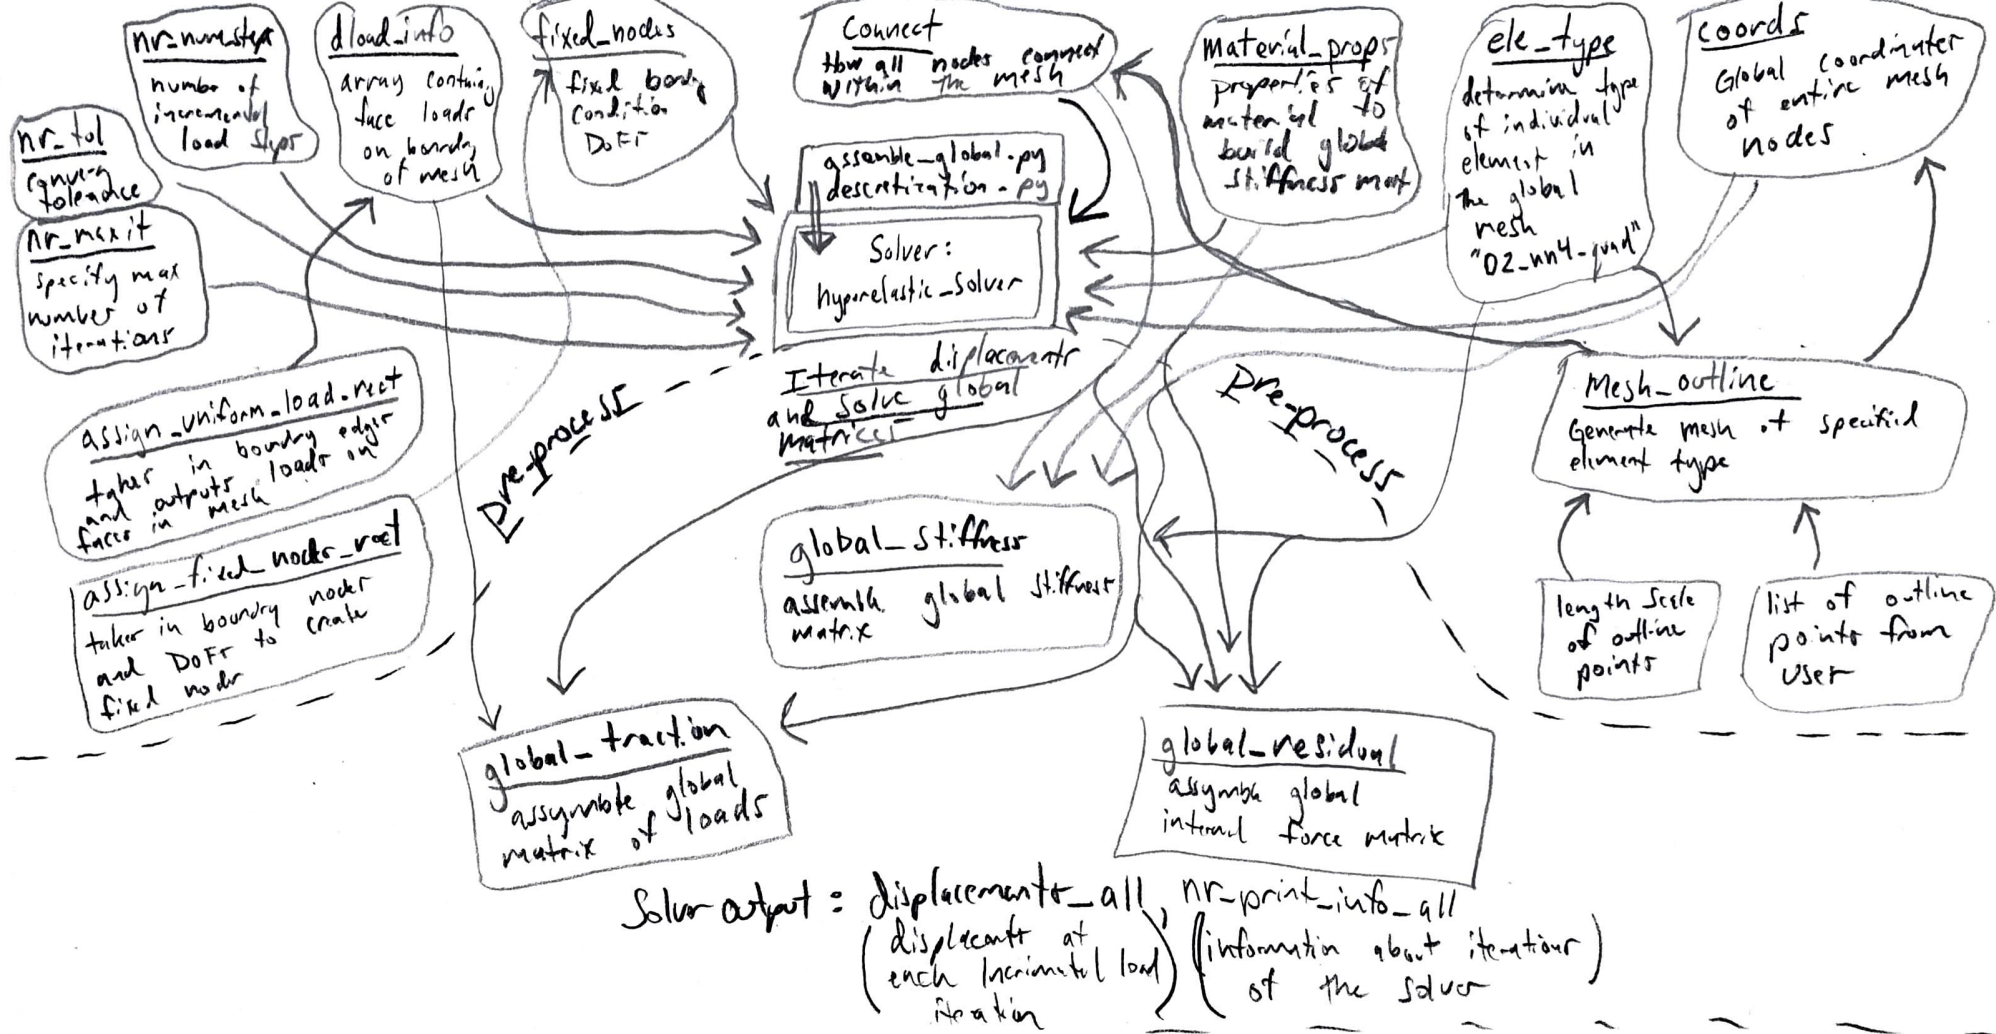 nr_numsteps
number of
incremental
load steps
dload_info
array containing
face loads
on boundry
of mesh
fixed_nodes
fixed boundry
condition
DoFs
Connect
How all nodes connect
within the mesh
material_props
properties of
material to
build global
stiffness mat
ele_type
determins type
of individual
element in
the global
mesh
"D2_nn4_quad"
coords
Global coordinates
of entire mesh
nodes
nr_tol
converg
tolerance
nr_maxit
specify max
number of
iterations
assemble_global.py
descretization.py
Solver:
hyperelastic_solver
Iterate displacements
and solve global
matrices
assign_uniform_load_rect
takes in boundry edges
and outputs loads on
faces in mesh
assign_fixed_nodes_rect
takes in boundry nodes
and DoFs to create
fixed nodes
Pre-process
Pre-process
Mesh_outline
Generate mesh of specified
element type
length scale
of outline
points
list of outline
points from
user
global_stiffness
assemble global stiffness
matrix
global_traction
assymble global
matrix of loads
global_residual
assymble global
internal force matrix
Solver output: displacements_all, nr_print_info_all
(displacemts at
each incrimatal load
iteration)
(information about iterations
of the solver)